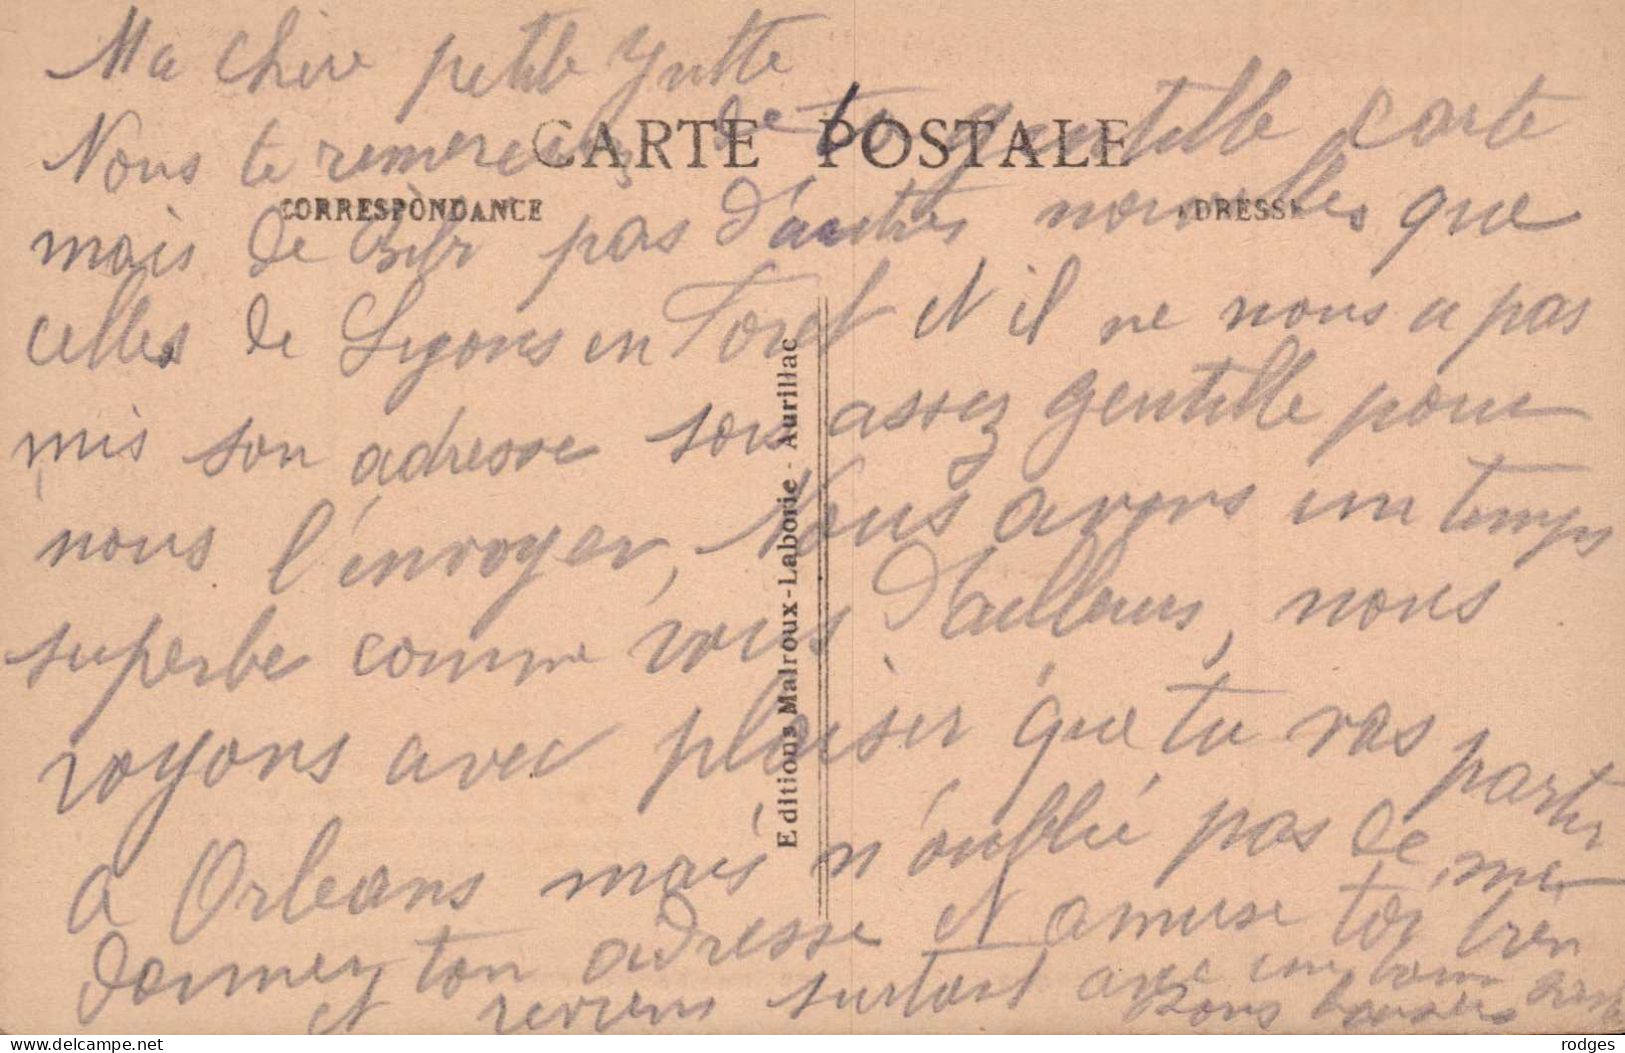 Ma chère petite Yvette
Nous te remercions de ta gentille carte
CARTE POSTALE
CORRESPONDANCE
ADRESSE
mais de pas d'autres nouvelles que
celles de Lyons en Foret et il ne nous a pas
mis son adresse sois assez gentille pour
nous l'envoyer, Nous avons un temps
superbe comme vous d'ailleurs, nous
voyons avec plaisir que tu vas partir
a Orleans mais n'oublie pas de me
donner ton adresse et amuse toi bien
et reviens surtout avec une bonne
Bons baisers
Editions Malroux-Laborie - Aurillac
rodges
delcampe.net